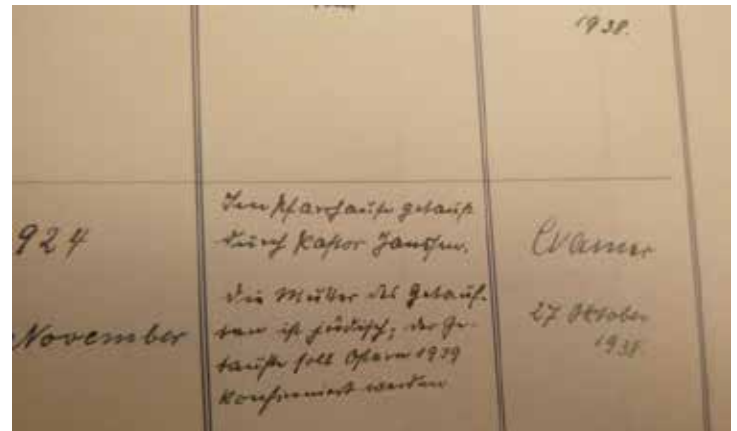 1938.
924
November
Im Pfarrhause getauft
durch Pastor Janssen.
Die Mutter des Getauf-
ten ist jüdisch; der Ge-
taufte soll Ostern 1939
konfirmiert werden
Cramer
27 Oktober
1938.